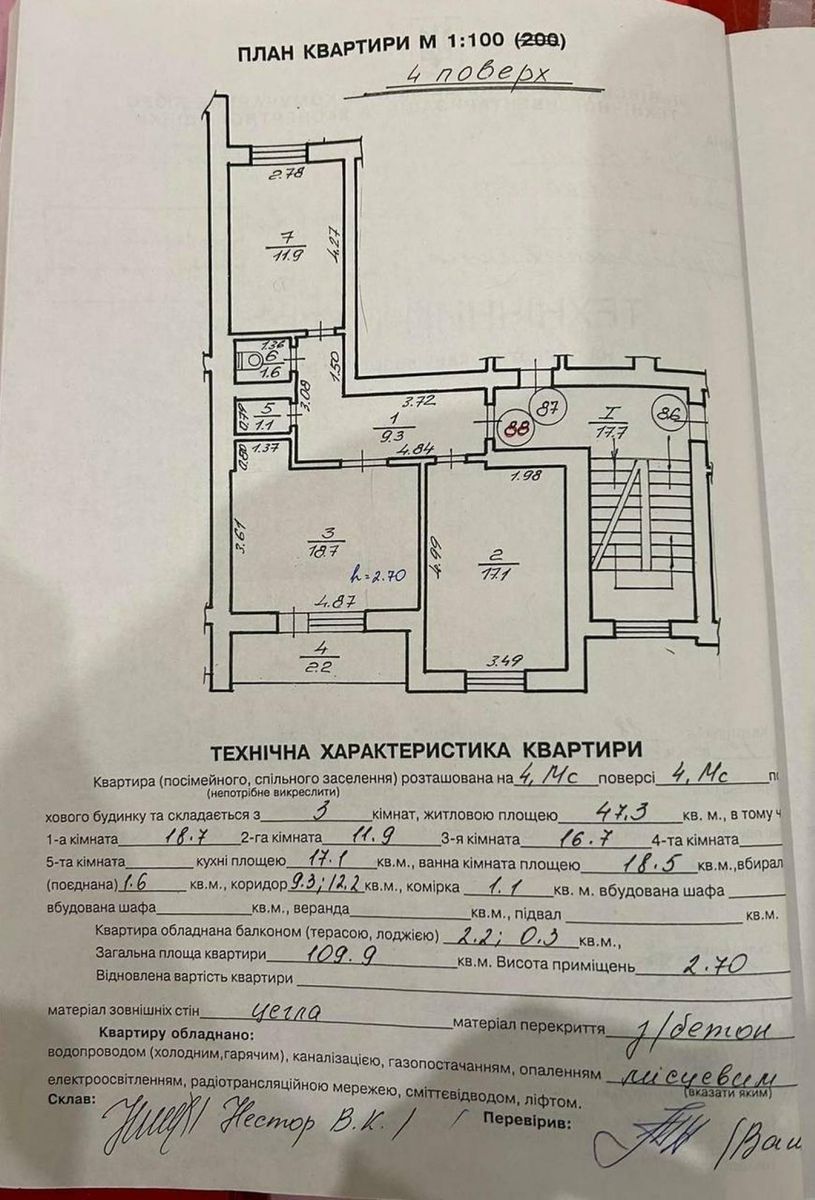 ПЛАН КВАРТИРИ М 1:100 (200)
4 поверх
2.78
7
11.9
4.27
1.36
6
1.6
1.50
3.08
0.79
5
1.1
3.72
1
9.3
4.84
88
87
I
17.7
86
0.80
1.37
1.98
3.61
3
18.7
h=2.70
4.87
4.99
2
17.1
3.49
4
2.2
ТЕХНІЧНА ХАРАКТЕРИСТИКА КВАРТИРИ
Квартира (посімейного, спільного заселення) розташована на 4, Мс поверсі 4, Мс
(непотрібне викреслити)
хового будинку та складається з 3 кімнат, житловою площею 47,3 кв. м., в тому ч
1-а кімната 18.7 2-га кімната 11.9 3-я кімната 16.7 4-та кімната
5-та кімната кухні площею 17.1 кв.м., ванна кімната площею 18.5 кв.м.,вбирал
(поєднана) 1.6 кв.м., коридор 9.3; 12.2 кв.м., комірка 1.1 кв. м. вбудована шафа
вбудована шафа кв.м., веранда кв.м., підвал кв.м.
Квартира обладнана балконом (терасою, лоджією) 2.2; 0.3 кв.м.,
Загальна площа квартири 109.9 кв.м. Висота приміщень 2.70
Відновлена вартість квартири
матеріал зовнішніх стін цегла матеріал перекриття з/бетон
Квартиру обладнано:
водопроводом (холодним,гарячим), каналізацією, газопостачанням, опаленням місцевим
(вказати яким)
електроосвітленням, радіотрансляційною мережею, сміттєвідводом, ліфтом.
Склав: Нестор В.К. Перевірив: